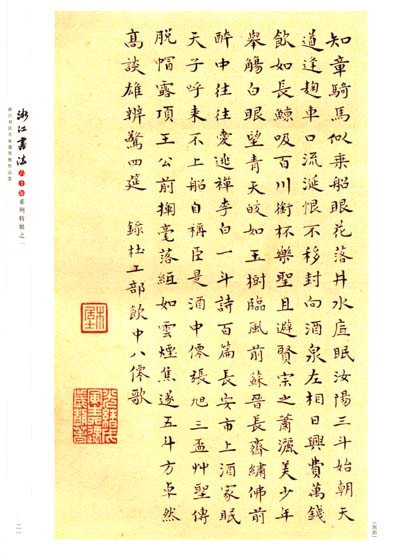 知章騎馬似乘船眼花落井水底眠汝陽三斗始朝天
道逢麹車口流涎恨不移封向酒泉左相日興費萬錢
飲如長鯨吸百川銜杯樂聖且避賢宗之蕭灑美少年
舉觴白眼望青天皎如玉樹臨風前蘇晉長齋繡佛前
醉中往往愛逃禪李白一斗詩百篇長安市上酒家眠
天子呼来不上船自稱臣是酒中僊張旭三盃艸聖傳
脱帽露頂王公前揮毫落紙如雲煙焦遂五斗方卓然
髙談雄辨驚四筵 録杜工部飲中八僊歌
浙江書法六十年系列特展之一